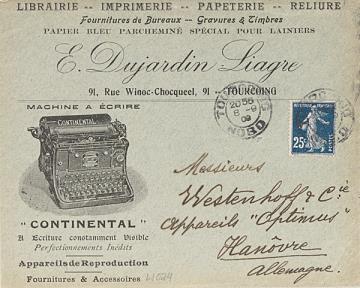 LIBRAIRIE -- IMPRIMERIE -- PAPETERIE -- RELIURE
Fournitures de Bureaux -- Gravures & Timbres
PAPIER BLEU PARCHEMINÉ SPÉCIAL POUR LAINIERS
E. Dujardin Liagre
91, Rue Winoc-Chocqueel, 91 -- TOURCOING
MACHINE A ÉCRIRE
CONTINENTAL
TOURCOING
20 55
8 - 9
09
NORD
25c
Messieurs
Westenhoff & Cie
Appareils "Optimus"
Hanovre
Allemagne.
"CONTINENTAL"
A Ecriture constamment Visible
Perfectionnements Inédits
Appareils de Reproduction
Fournitures & Accessoires